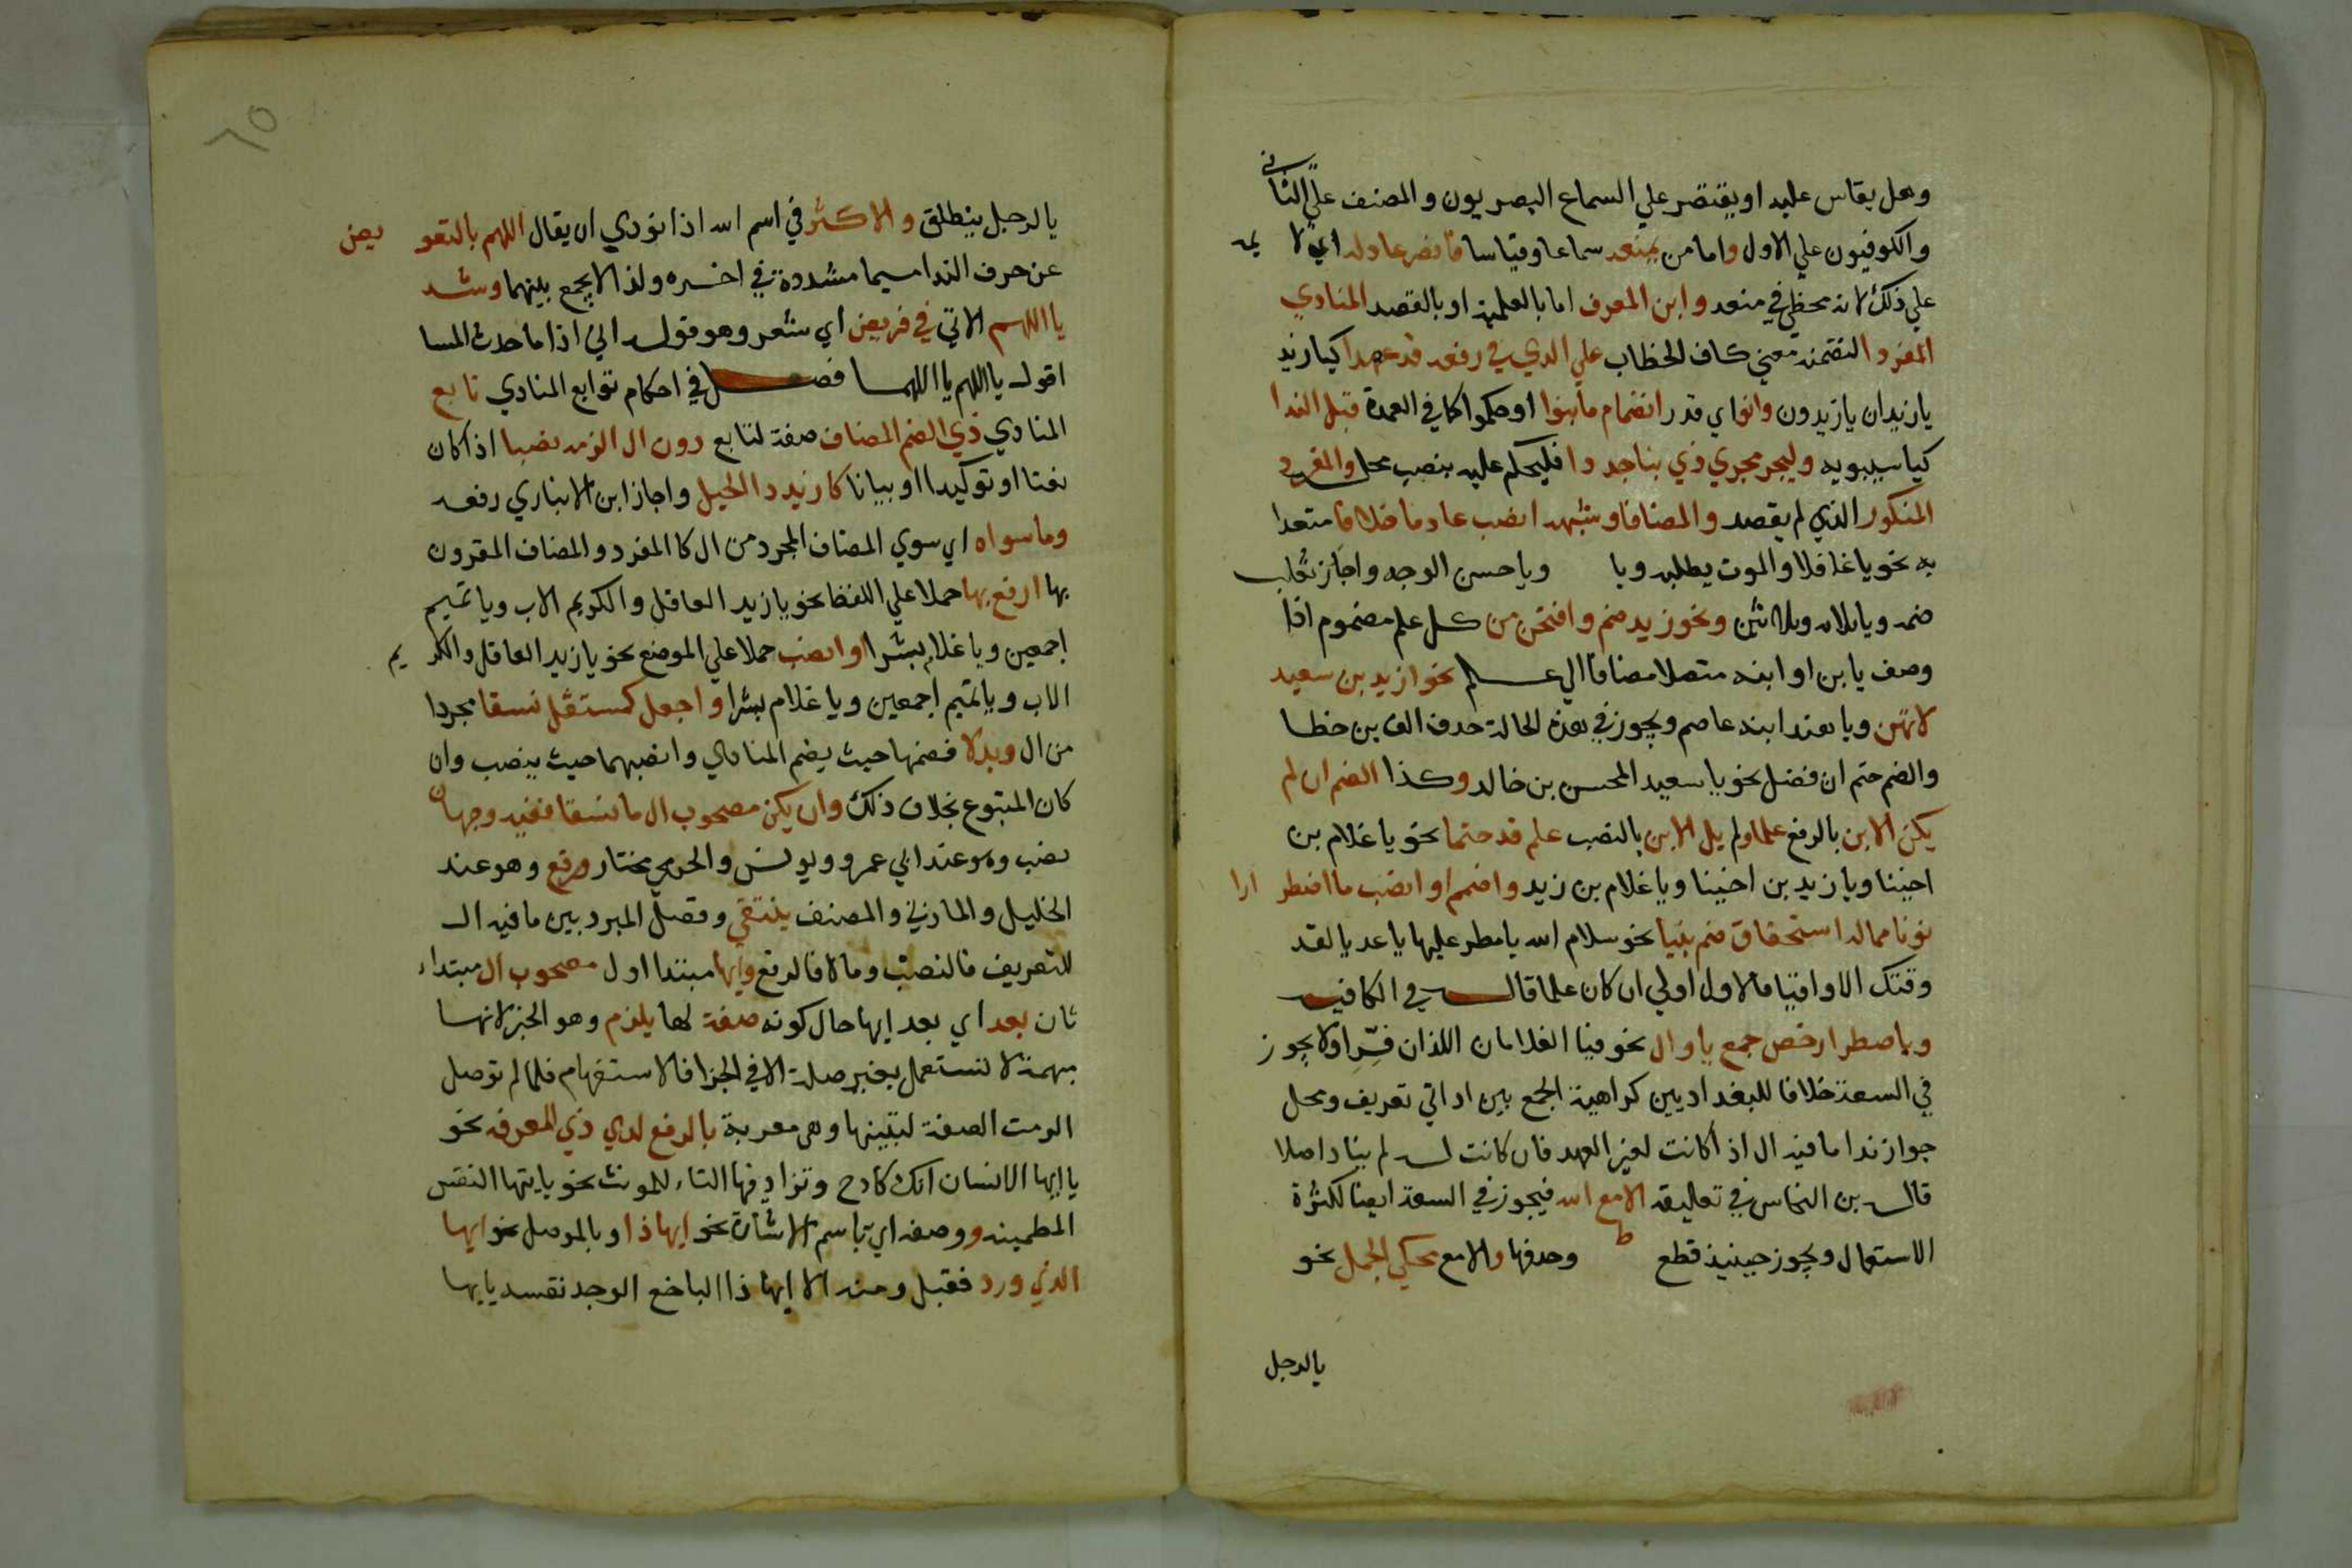 وهل يقاس عليه او يقتصر علي السماع البصريون والمصنف علي الثاني
والكوفيون علي الاول واما من يمنعه سماعا وقياسا فانصر عاذله اي لا يمه
علي ذلك لانه مخطي في منعه وابن المعرف اما بالعلمية او بالقصد المنادي
المفرد التضمنه معني كاف الخطاب علي الذي في رفعه قد عهدا كيا زيد
يا زيدان يا زيدون وانو اي قدر انضمام ما بنوا او حكموا كما في العمدة قبل الندا
كيا سيبويه وليجر مجري ذي بنا جددا فليحكم عليه بنصب محل والمفرد
المنكور الذي لم يقصد والمضافا وشبهه انصب عادما خلافا متعدا
به نحو يا غافلا والموت يطلبه ويا وياحسن الوجه واجاز ثعلب
ضمه ويا ثلاثه وثلاثين ونحو زيد ضم وافتحن من كل علم مضموم اذا
وصف يا بن او ابنه متصلا مضافا الي علم نحو ازيد بن سعيد
لا تهن ويا هند ابنه عاصم ويجوز في هذه الحالة حدف الف بن خطا
والضم حتم ان فصل نحو يا سعيد المحسن بن خالد وكذا الضم ان لم
يكن الابن بالرفع علما ولم يل الابن بالنصب علم قد حتما نحو يا غلام بن
اخينا ويا زيد بن اخينا ويا غلام بن زيد واضمم او انصب ما اضطرارا
نونا مما له استحقاق ضم بنيا نحو سلام الله يا مطر عليها يا عديا لقد
وقتك الاواقيا فالاول اولي ان كان علما قال في الكافيه
وباضطرار خص جمع يا وال نحو فيا الغلامان اللذان فرا ولا يجوز
في السعة خلافا للبغداديين كراهية الجمع بين اداتي تعريف ومحل
جواز ندا ما فيه ال اذا كانت لغير العهد فان كانت له لم يناد اصلا
قال بن النحاس في تعاليقه الا مع الله فيجوز في السعة ايضا لكثرة
الاستعمال ويجوز حينيذ قطع وحدفها والا مع محكي الجمل نحو
يا لرجل
٦٥
يا لرجل ينطلق والاكثر في اسم الله اذا نودي ان يقال اللهم بالتعويض
عن حرف الندا ميما مشددة في اخره ولذا لا يجمع بينهما وشد
يا اللهم الاتي في قريض اي شعر وهو قوله اني اذا ما حدث المسا
اقول يا اللهم يا اللهما فصل في احكام توابع المنادي تابع
المنادي ذي الضم المضاف صفة لتابع دون ال الزمه نصبا اذا كان
نعتا او توكيدا او بيانا كازيد دا الحيل واجاز ابن الانباري رفعه
وما سواه اي سوي المضاف المجرد من ال كا المفرد والمضاف المقرون
بها ارفع بها حملا علي اللفظ نحو يا زيد العاقل والكريم الاب ويا تميم
اجمعين ويا غلام بشرا او انصب حملا علي الموضع نحو يا زيد العاقل والكريم
الاب ويا تميم اجمعين ويا غلام بشرا واجعل كمستقل نسقا مجردا
من ال وبدلا فضمها حيث يضم المنادي وانصبهما حيث ينصب وان
كان المتبوع بخلاف ذلك وان يكن مصحوب ال ما نسقا ففيه وجهان
نصب وهو عند ابي عمرو ويونس والجرمي مختار ورفع وهو عند
الخليل والمازني والمصنف ينتقي وفصل المبرد بين ما فيه ال
للتعريف فالنصب وما لا فالرفع وايها مبتدا اول مصحوب ال مبتداء
ثان بعد اي بعد ايها حال كونه صفة لها يلزم وهو الخبر لانها
مبهمة لا تستعمل بغير صلة الا في الجزا فالاستفهام فلما لم توصل
الزمت الصفة لتبينها وهي معربة بالرفع لدي ذي المعرفه نحو
يا ايها الانسان انك كادح وتزاد فها التاء للمونث نحو يايتها النفس
المطمينه ووصف اي باسم الاشارة نحو ايها ذا او بالموصل نحو ايها
الذي ورد فقبل ومنه الا ايها ذا الباخع الوجد نفسه يايها